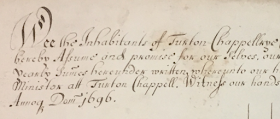 Wee the Inhabitants of Turton Chappellrye
hereby Assume and promise for our selves, our
yearly Sumes hereunder written, whereunto our h
Minister att Turton Chappell. Witness our hands
Annoq Domi 1696.